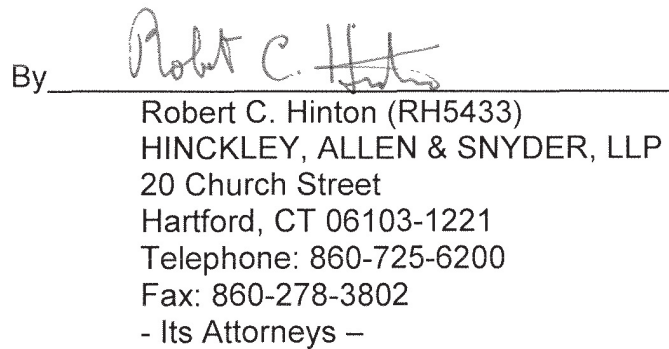 By Robert C. Hinton
Robert C. Hinton (RH5433)
HINCKLEY, ALLEN & SNYDER, LLP
20 Church Street
Hartford, CT 06103-1221
Telephone: 860-725-6200
Fax: 860-278-3802
- Its Attorneys –